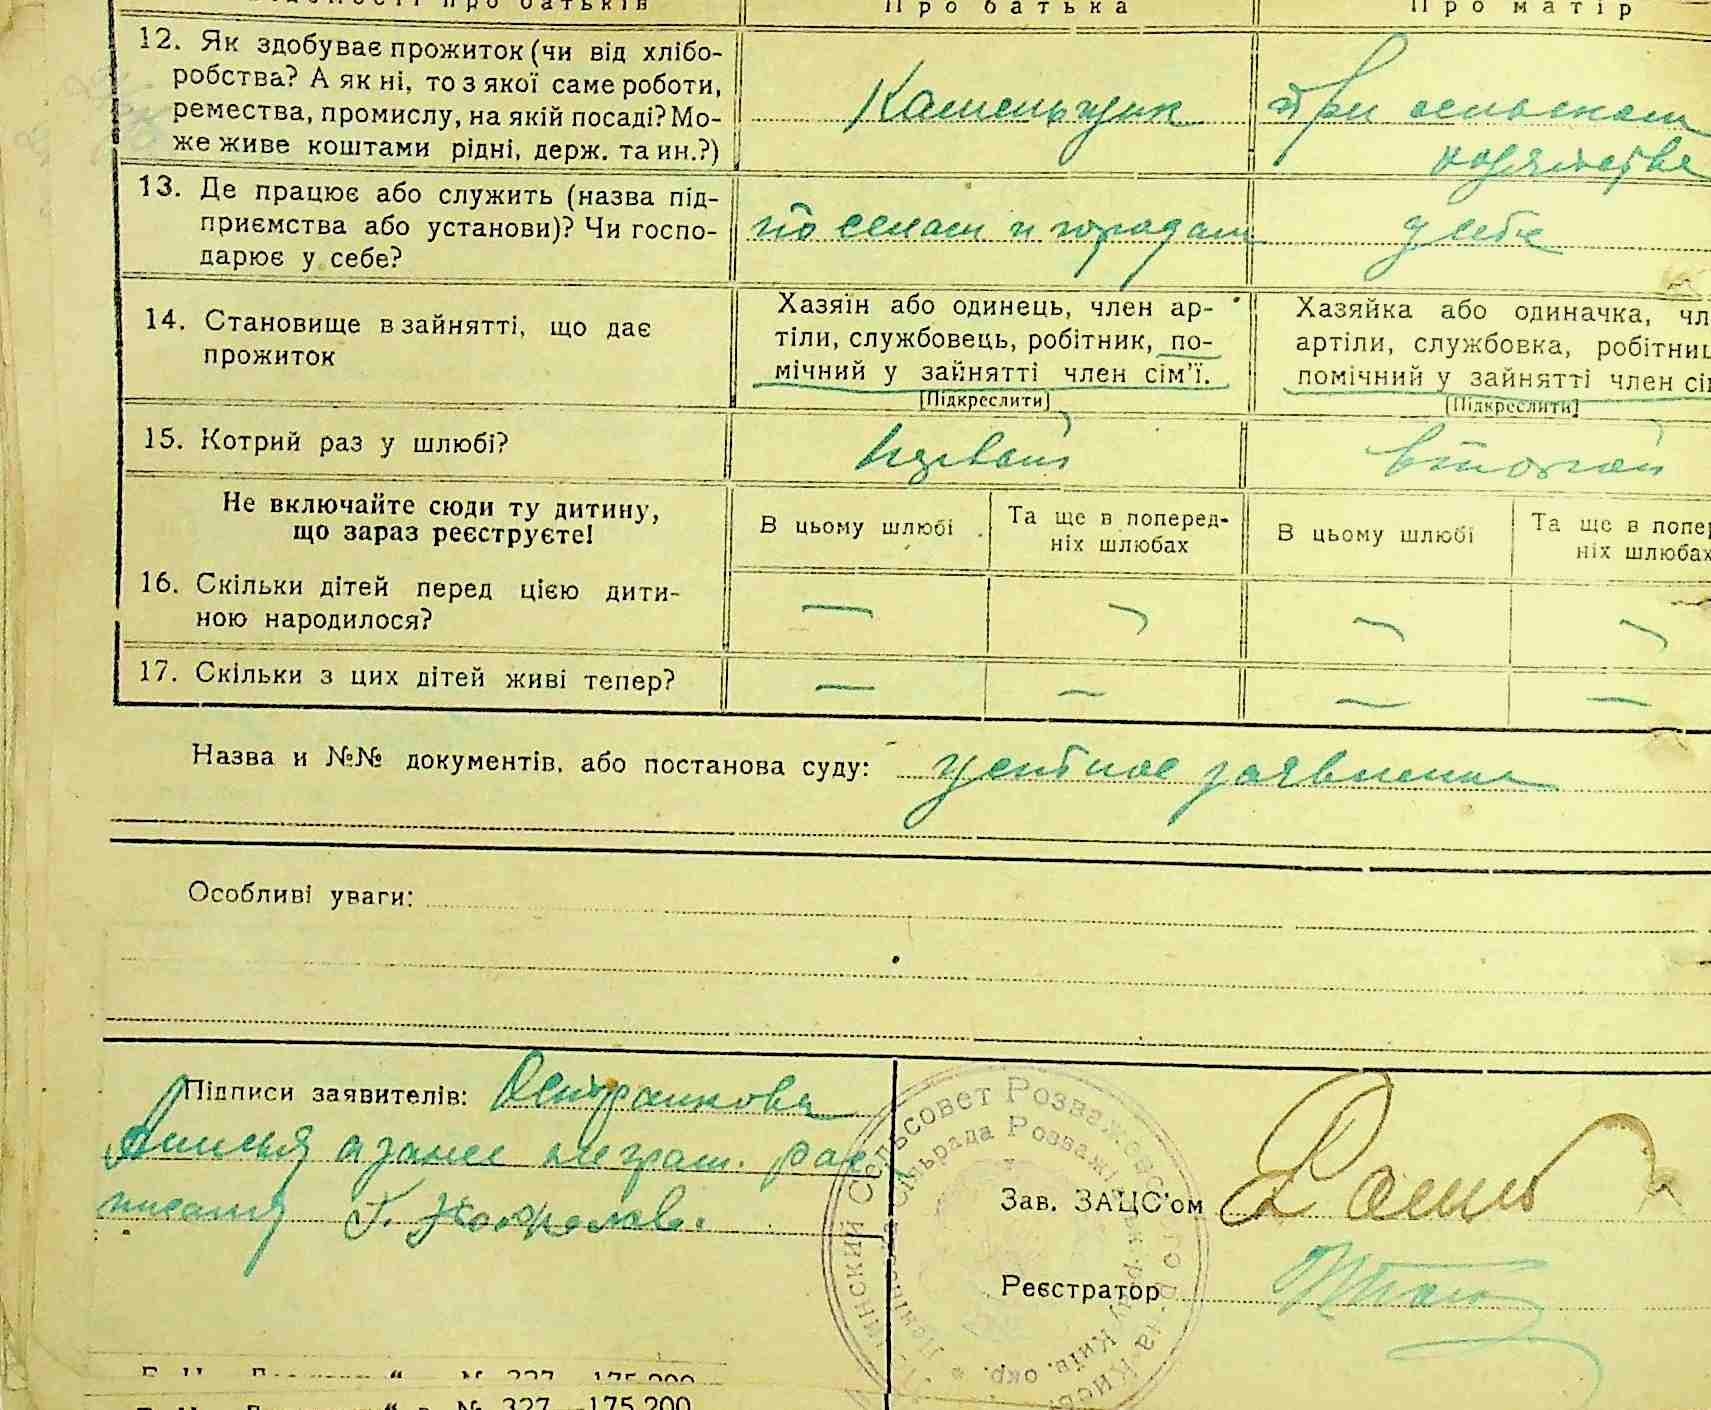 Відомості про батьків Про батька Про матір
12. Як здобуває прожиток (чи від хлібо-
робства? А як ні, то з якої саме роботи,
ремества, промислу, на якій посаді? Мо-
же живе коштами рідні, держ. та ин.?)
Каменьщик
при сельском
хозяйстве
13. Де працює або служить (назва під-
приємства або установи)? Чи госпо-
дарює у себе?
по селам и городам
у себе
14. Становище в зайнятті, що дає
прожиток
Хазяїн або одинець, член ар-
тіли, службовець, робітник, по-
мічний у зайнятті член сім'ї.
[Підкреслити]
Хазяйка або одиначка, чл
артіли, службовка, робітниц
помічний у зайнятті член сі
[Підкреслити]
15. Котрий раз у шлюбі?
первый
второй
Не включайте сюди ту дитину,
що зараз реєструєте!
В цьому шлюбі
Та ще в поперед-
ніх шлюбах
В цьому шлюбі
Та ще в попер
ніх шлюбах
16. Скільки дітей перед цією дити-
ною народилося?
— — — —
17. Скільки з цих дітей живі тепер?
— — — —
Назва и №№ документів, або постанова суду: устное заявление
Особливі уваги:
Підписи заявителів:
а занее неграм. рас
писался
Сельсовет Розважевс
сільрада Розважі
Київ. окр.
Зав. ЗАЦС'ом
Реєстратор
№ 327—175.200
№ 327—175.200